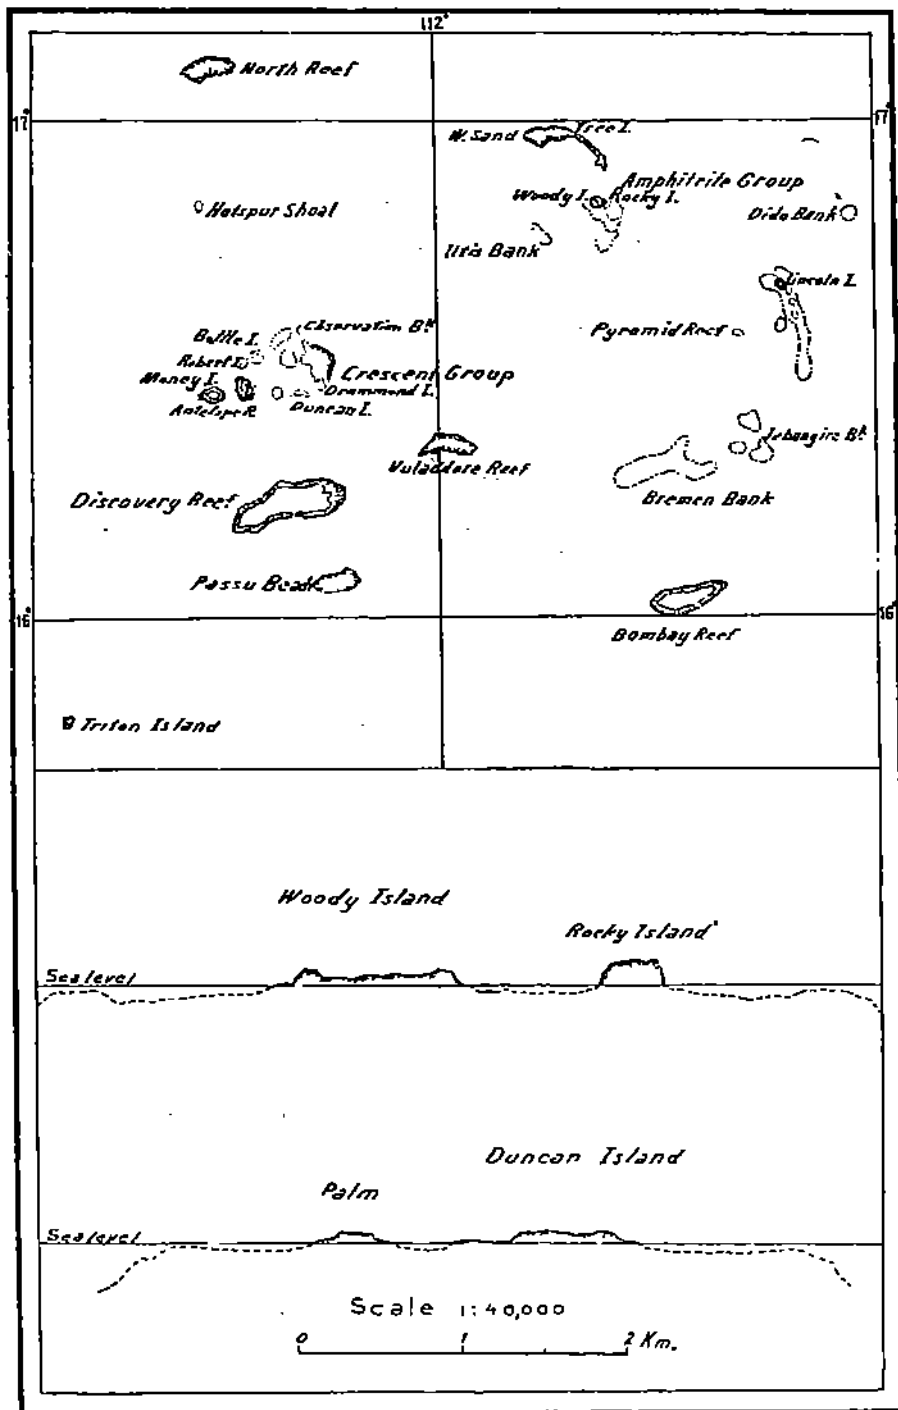 112°
North Reef
17°
17°
W. Sand
Tree I.
Amphitrite Group
Woody I.
Rocky I.
Hotspur Shoal
Dido Bank
Iltis Bank
Lincoln I.
Observation Bk
Pyramid Reef
Robert I.
Crescent Group
Money I.
Drummond I.
Antelope R.
Duncan I.
Jehangire Bk
Vuladdore Reef
Discovery Reef
Bremen Bank
Passu Bead
16°
16°
Bombay Reef
Triton Island
Woody Island
Rocky Island
Sea level
Duncan Island
Palm
Sea level
Scale 1:40,000
0 1 2 Km.